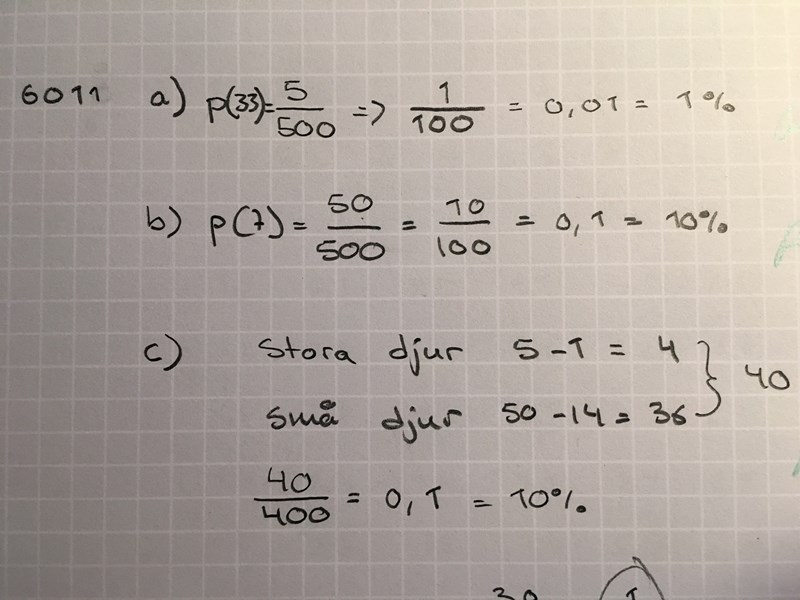 6011 a) p(33)= 5/500 => 1/100 = 0,01 = 1%
b) p(7) = 50/500 = 10/100 = 0,1 = 10%
c) Stora djur 5 - 1 = 4 } 40
små djur 50 - 14 = 36
40/400 = 0,1 = 10%